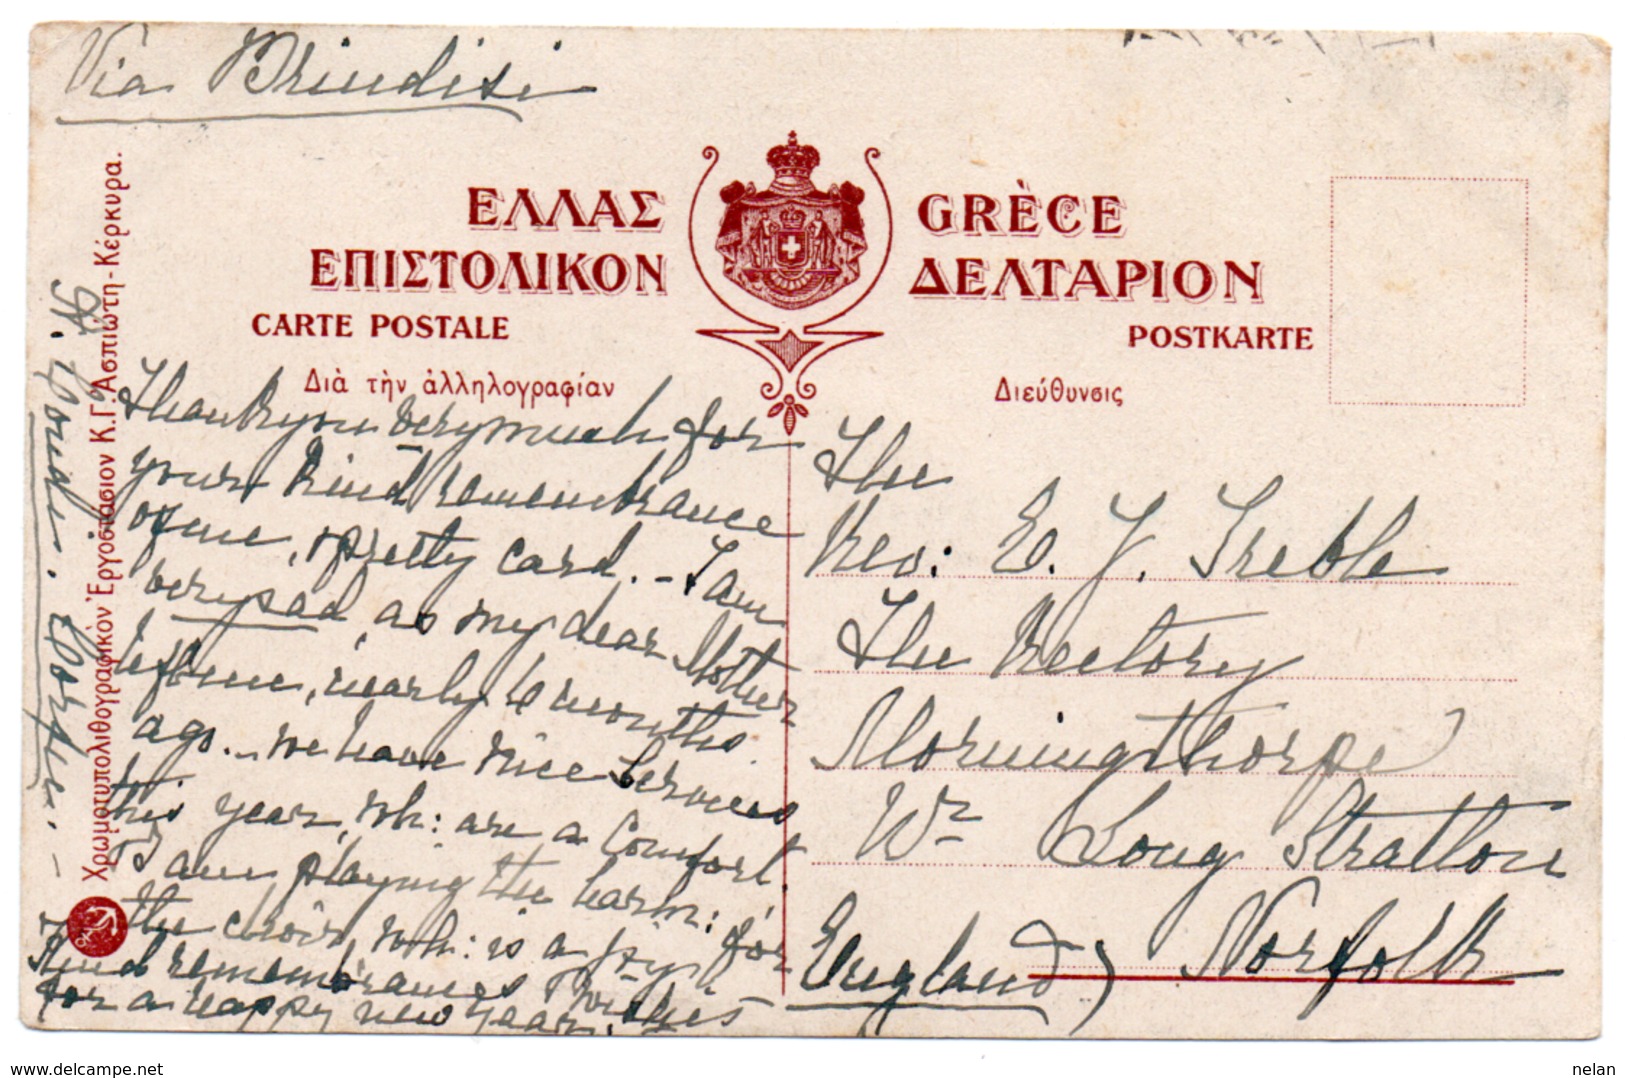 Via Brindisi
ΕΛΛΑΣ
ΕΠΙΣΤΟΛΙΚΟΝ
CARTE POSTALE
Διὰ τὴν ἀλληλογραφίαν
GRÈCE
ΔΕΛΤΑΡΙΟΝ
POSTKARTE
Διεύθυνσις
Χρωμοτυπολιθογραφικὸν Ἐργοστάσιον Κ.Γ. Ἀσπιώτη-Κέρκυρα.
Corfu. –
Thank you very much for
your kind remembrance
of me, & pretty card. – I am
very sad, as my dear Mother
left me, nearly 6 months
ago. – We have nice Services
this year, wh: are a Comfort
& I am playing the harm: for
the choir, wh: is a joy.
kind remembrances & Wishes
for a happy new year.
The
Rev: E. J. Treble
The Rectory
Morningthorpe
Nr Long Stratton
Norfolk
England
delcampe.net
nelan